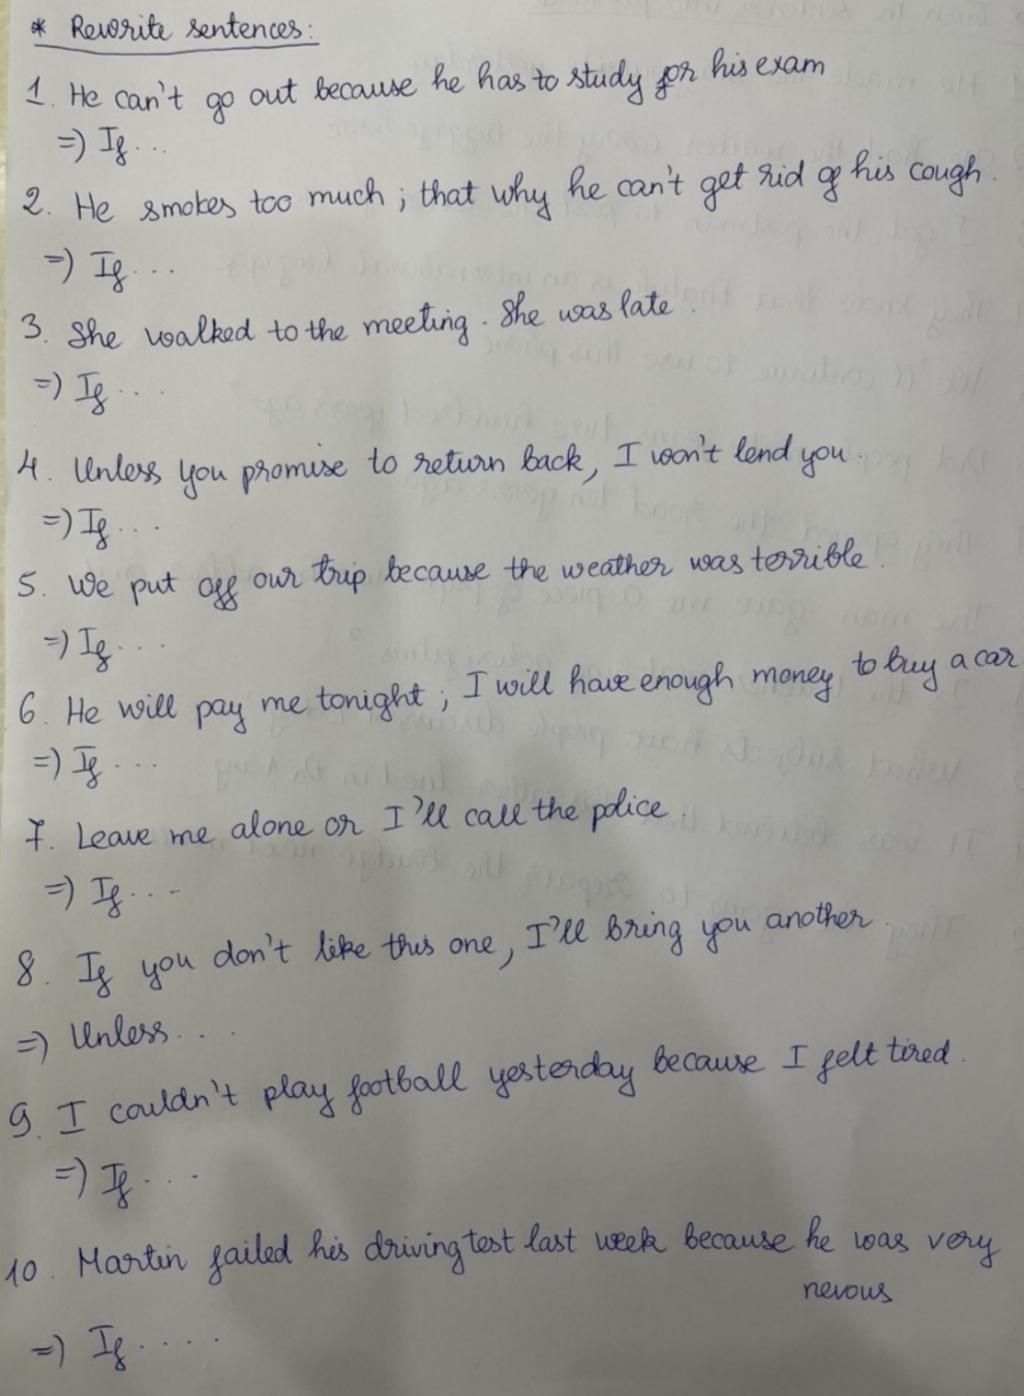 * Rewrite sentences:
1. He can't go out because he has to study for his exam
=) If...
2. He smokes too much; that why he can't get rid of his cough.
=) If...
3. She walked to the meeting. She was late.
=) If...
4. Unless you promise to return back, I won't lend you.
=) If...
5. We put off our trip because the weather was terrible.
=) If...
6. He will pay me tonight; I will have enough money to buy a car
=) If...
7. Leave me alone or I'll call the police.
=) If...
8. If you don't like this one, I'll bring you another.
=) Unless...
9. I couldn't play football yesterday because I felt tired.
=) If...
10. Martin failed his driving test last week because he was very
nevous
=) If....